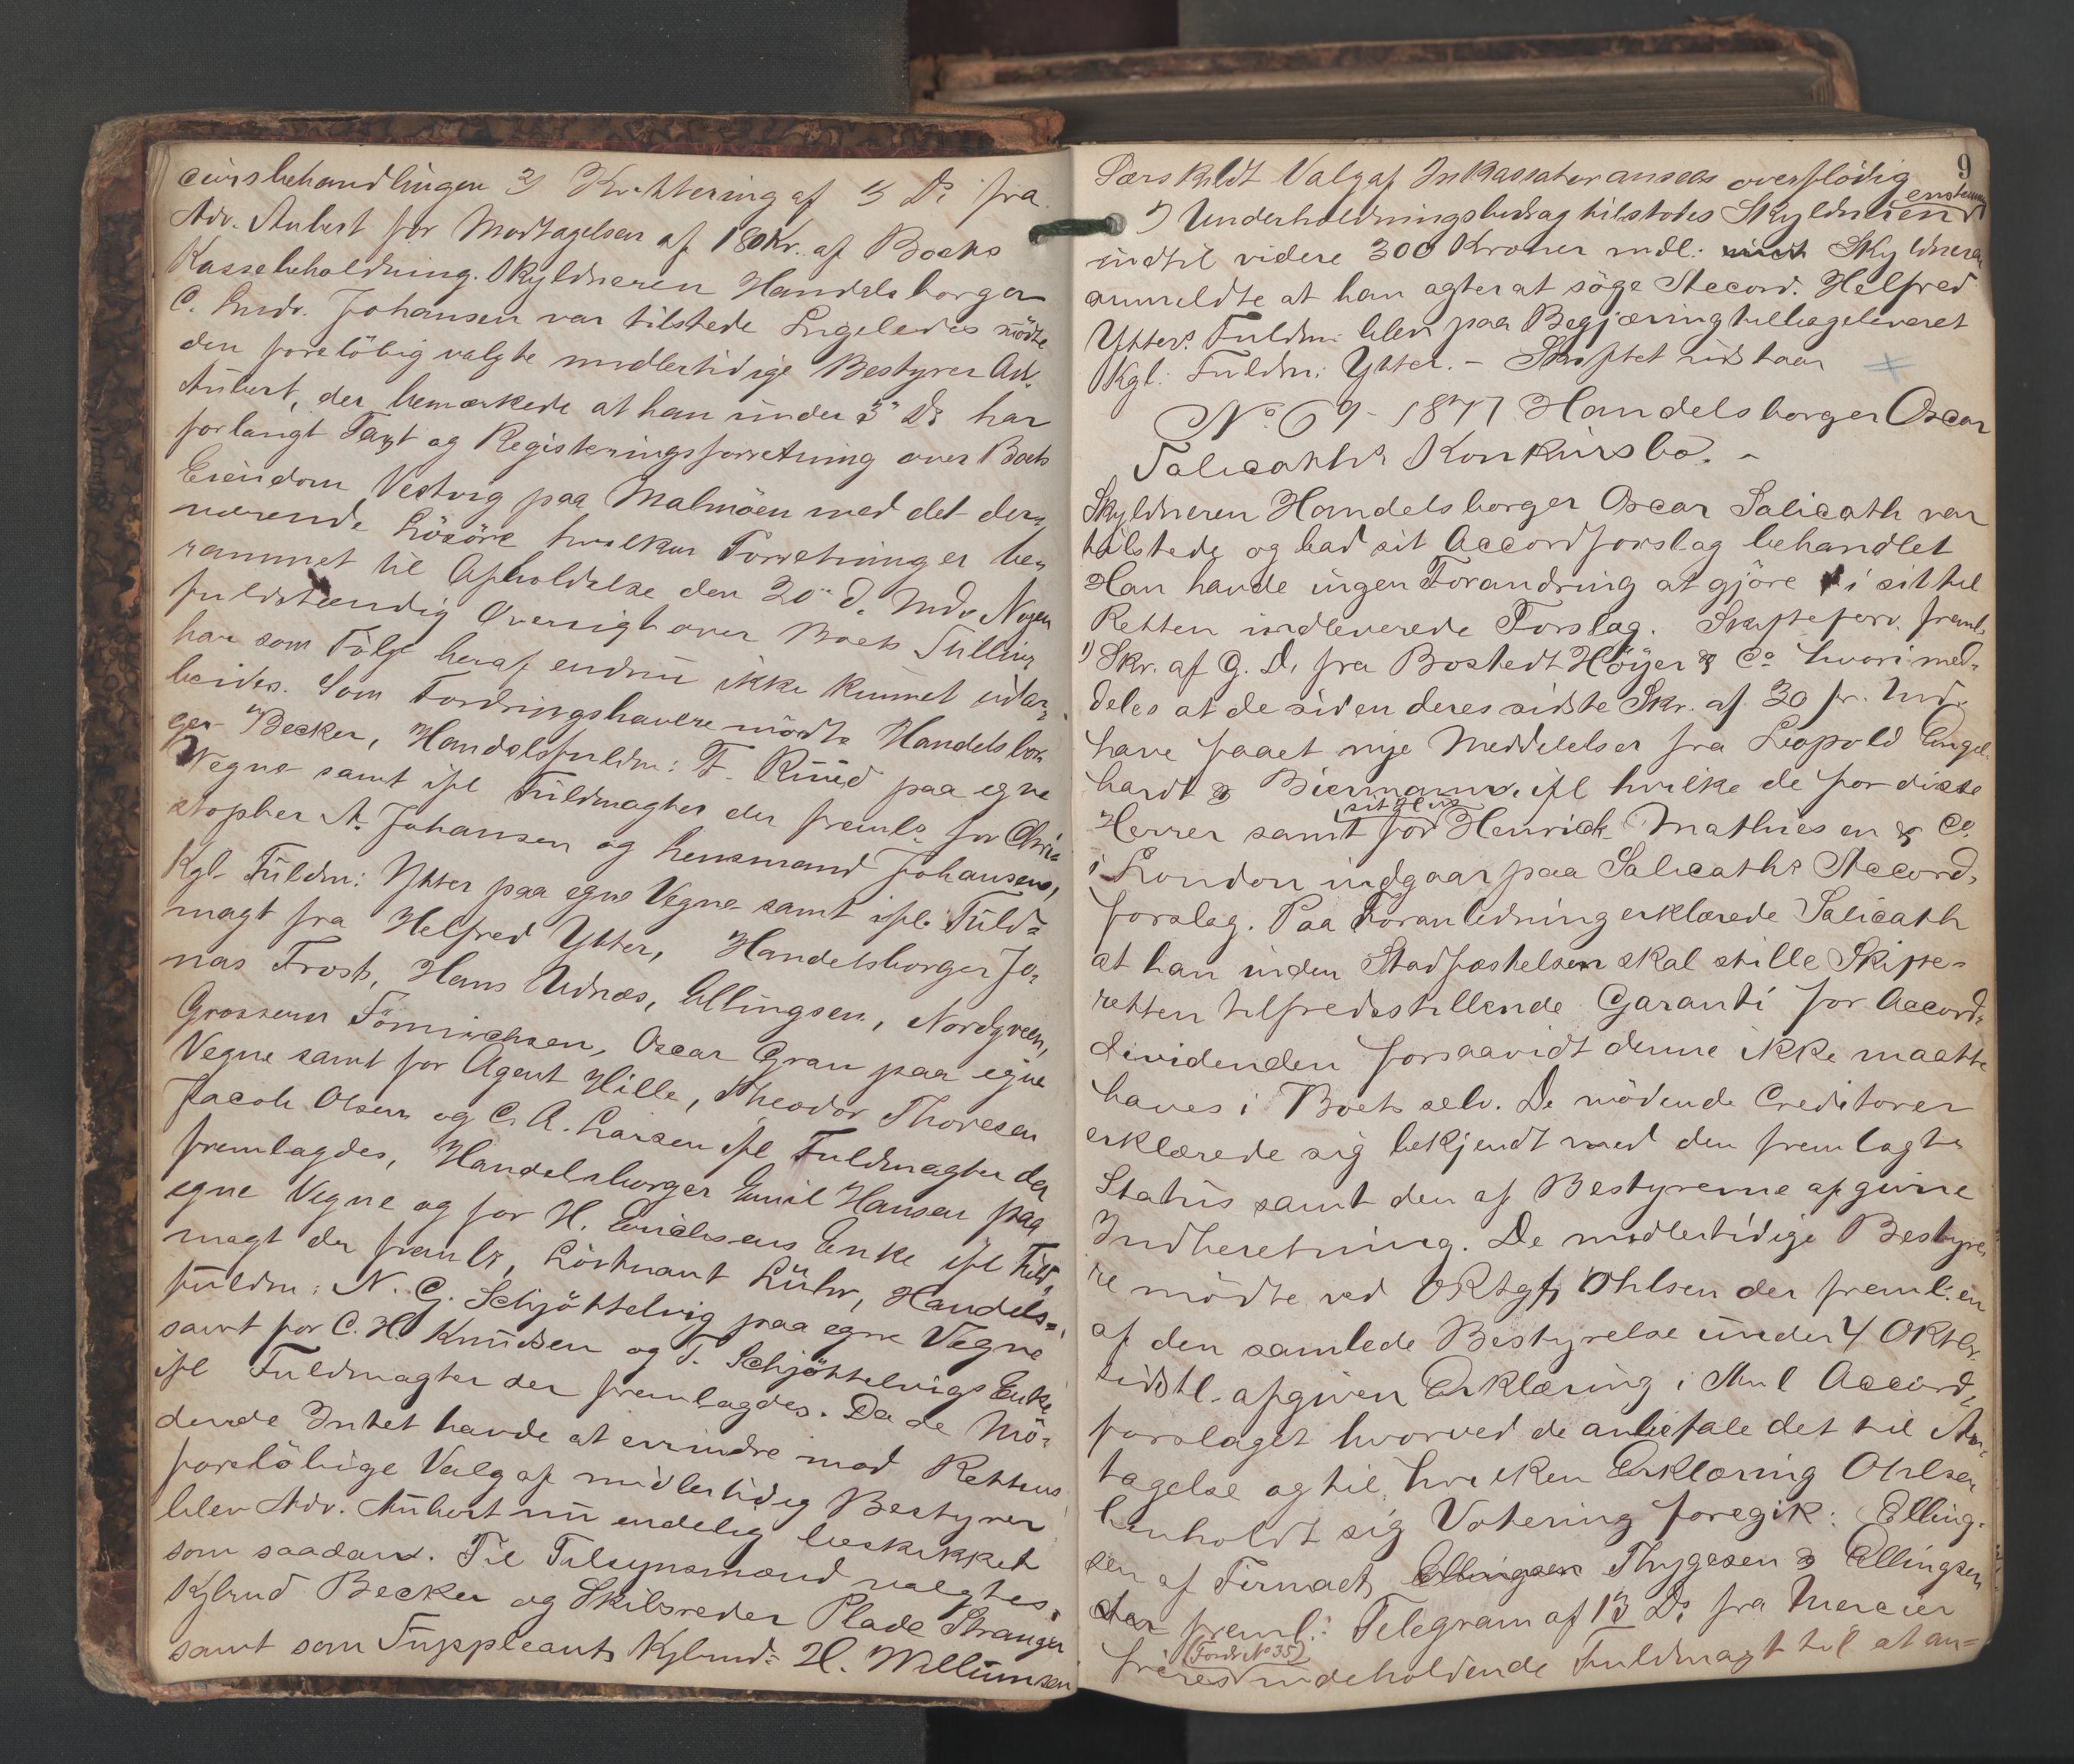 cursbehandlingen 2) Kvittering af 13 Ds fra
Adv. Aubert for Modtagelsen af 180 Kr. af Boets
Kassebeholdning. Skyldneren Handelsborger
C. Ludv. Johansen var tilstede Ligeledes mödte
den foreløbig valgte midlertidige Bestyrer Adv.
Aubert, der bemærkede at han under 3' Ds har
forlangt Taxt og Registeringsforretning over Boets
Eiendom Vestvig paa Malmöen med det der-
værende Lösöre hvilken Forretning er be-
rammet til Afholdelse den 20de d. Md. Nogen
fuldstændig Oversigt over Boets Stilling
har som Fölge heraf endnu ikke kunnet udar-
beides. Som Fordringshavere mödte Handelsbor-
ger Becker, Handelsfuldm: F. Ruud paa egne
Vegne samt ifl Fuldmagter der freml: for Chri-
stopher A. Johansen og Lensmand Johansens,
Kgl. Fuldm: Ytter paa egne Vegne samt ifl. Fuld-
magt fra Helfred Ytter, Handelsborger Jo-
nas Frost, Hans Udnæs, Ellingsen, Nordgreen,
Grosserer Tönnichsen, Oscar Gran paa egne
Vegne samt for Agent Hille, Theodor Thoresen
Jacob Olsen og C. A. Larsen ifl Fuldmagter der
fremlagdes, Handelsborger Emil Hansen paa
egne Vegne og for H. Erichsens Enke ifl Fuld-
magt der fremls, Löitnant Lühr, Handels-
fuldm: N. G. Schjöttelvig paa egne Vegne
samt for C. H. Knudsen og T. Schjöttelvigs Enke
ifl Fuldmagter der fremlagdes. Da de Mö-
dende Intet havde at erindre mod Rettens
foreløbige Valg af midlertidig Bestyrer
blev Adv. Aubert nu endelig beskikket
som saadan. Til Tilsynsmænd valgtes
Kjbmd Becker og Skibsreder Plade Stranger
samt som Suppleant Kjbmd: H. Willumsen
9
Særskildt Valg af Inkassator ansees overflödig
enstemmig
1) Underholdningsbidrag tilstodes Skyldneren
indtil videre 300 Kroner mdl: Skyldneren
anmeldte at han agter at söge Accord. Helfred
Ytters Fuldm: blev paa Begjæring tilbageleveret
Kgl: Fuldm: Ytter. – Skiftet udstaar
No 69 - 1877 Handelsborger Oscar
Salicaths Konkursbo. –
Skyldneren Handelsborger Oscar Salicath var
tilstede og bad sit Accordforslag behandlet
Han havde ingen Forandring at gjöre i sit til
Retten indleverede Forslag. Skifteforv. freml:
1) Skr. af G. D. fra Bostedt Höyer & Co hvori med-
deles at de siden deres sidste Skr. af 30 fr. Md.
have faaet nye Meddelelser fra Leopold Engel-
hardt & Biermann, ifl hvilke de for disse
sidstens
Herrer samt for Henrick Mathiesen & Co.
i London indgaar paa Salicaths Accord-
forslag. Paa Foranledning erklærede Salicath
at han inden Stadfæstelsen skal stille Skifte-
retten tilfredsstillende Garanti for Accord-
dividenden forsaavidt denne ikke maatte
haves i Boet selv. De mödende Creditorer
erklærede sig bekjendt med den fremlagte
Status samt den af Bestyrerne afgivne
Indberetning. De midlertidige Bestyre-
re mödte ved ORtgf Ohlsen der freml: en
af den samlede Bestyrelse under 4 Oktbr.
sidstl. afgiven Erklæring i Anl Accord-
forslaget hvorved de anbefale det til An-
tagelse og til hvilken Erklæring Ohlsen
henholdt sig Votering foregik: Elling-
sen af Firmaet Ellingsen Thygesen & Ellingsen
der freml: Telegram af 13 Ds fra Mercier
(Fordr. No 35)
fréres indeholdende Fuldmagt til at an-